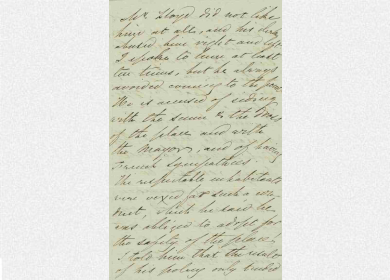 Mr Lloyd did not like
him at all, and his
abused him right and left
I spoke to him at least
ten times, but he always
avoided coming to the
He is accused of siding
with the scum & the
of the place and with
the Mayor, and of having
French sympathies
The respectable inhabitants
were vexed at such a
which he said he
was obliged to adopt for
the safety of the place,
I told him that the result
of his policy only